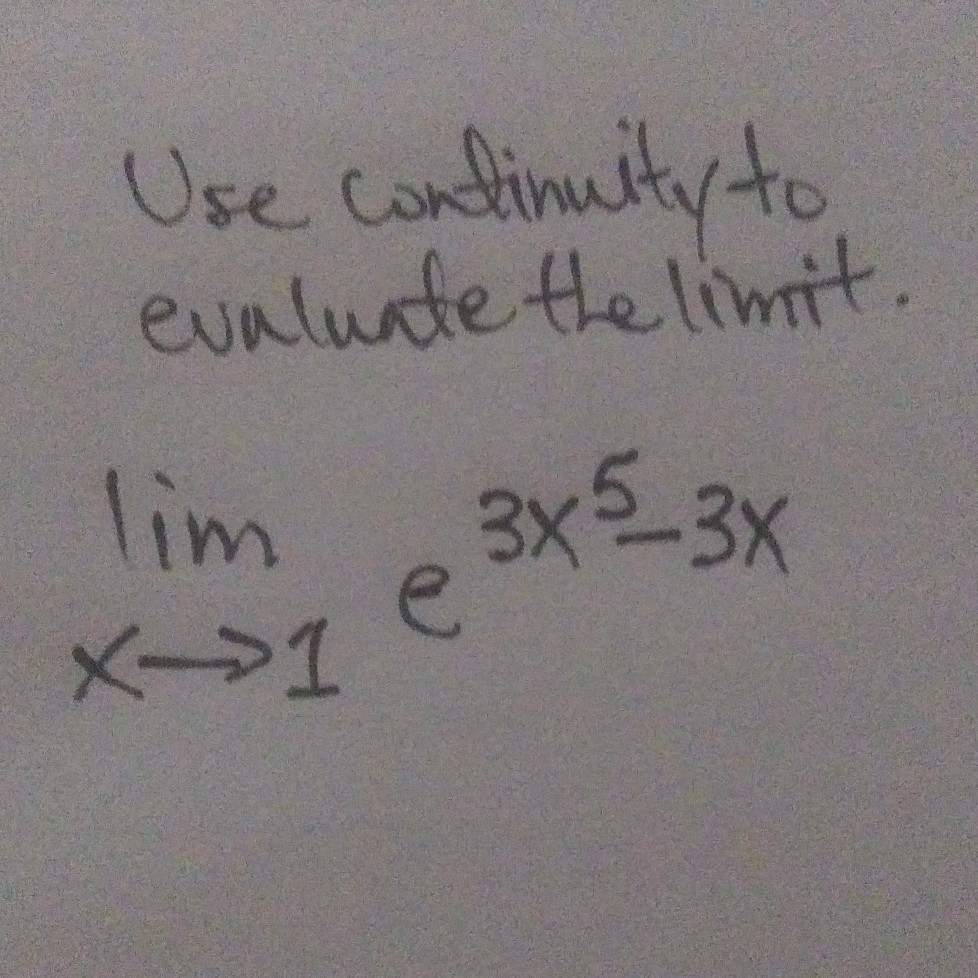 Use continuity to
evaluate the limit.
lim e^{3x^5-3x}
x→1